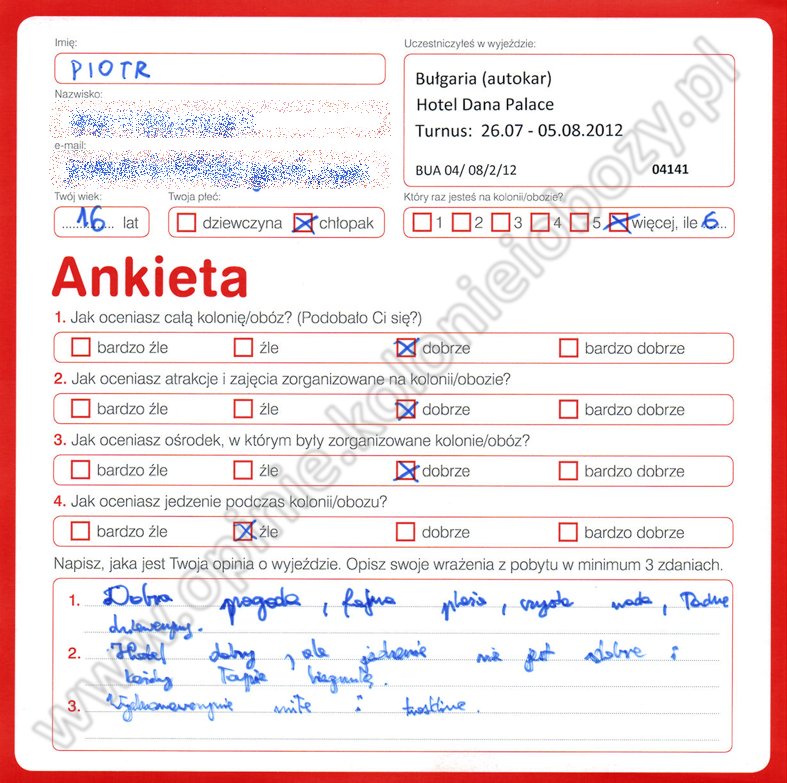 Imię:
PIOTR
Nazwisko:
e-mail:
Twój wiek:
16 lat
Twoja płeć:
dziewczyna chłopak
Uczestniczyłeś w wyjeździe:
Bułgaria (autokar)
Hotel Dana Palace
Turnus: 26.07 - 05.08.2012
BUA 04/ 08/2/12 04141
Który raz jesteś na kolonii/obozie?
1 2 3 4 5 więcej, ile 6
Ankieta
1. Jak oceniasz całą kolonię/obóz? (Podobało Ci się?)
bardzo źle źle dobrze bardzo dobrze
2. Jak oceniasz atrakcje i zajęcia zorganizowane na kolonii/obozie?
bardzo źle źle dobrze bardzo dobrze
3. Jak oceniasz ośrodek, w którym były zorganizowane kolonie/obóz?
bardzo źle źle dobrze bardzo dobrze
4. Jak oceniasz jedzenie podczas kolonii/obozu?
bardzo źle źle dobrze bardzo dobrze
Napisz, jaka jest Twoja opinia o wyjeździe. Opisz swoje wrażenia z pobytu w minimum 3 zdaniach.
1. Dobra pogoda, fajna plaża, czysta woda, ładne
dziewczyny.
2. Hotel dobry, ale jedzenie nie jest dobre i
każdy łapie biegunkę.
3. miłe i
www.opinie.kolonieiobozy.pl